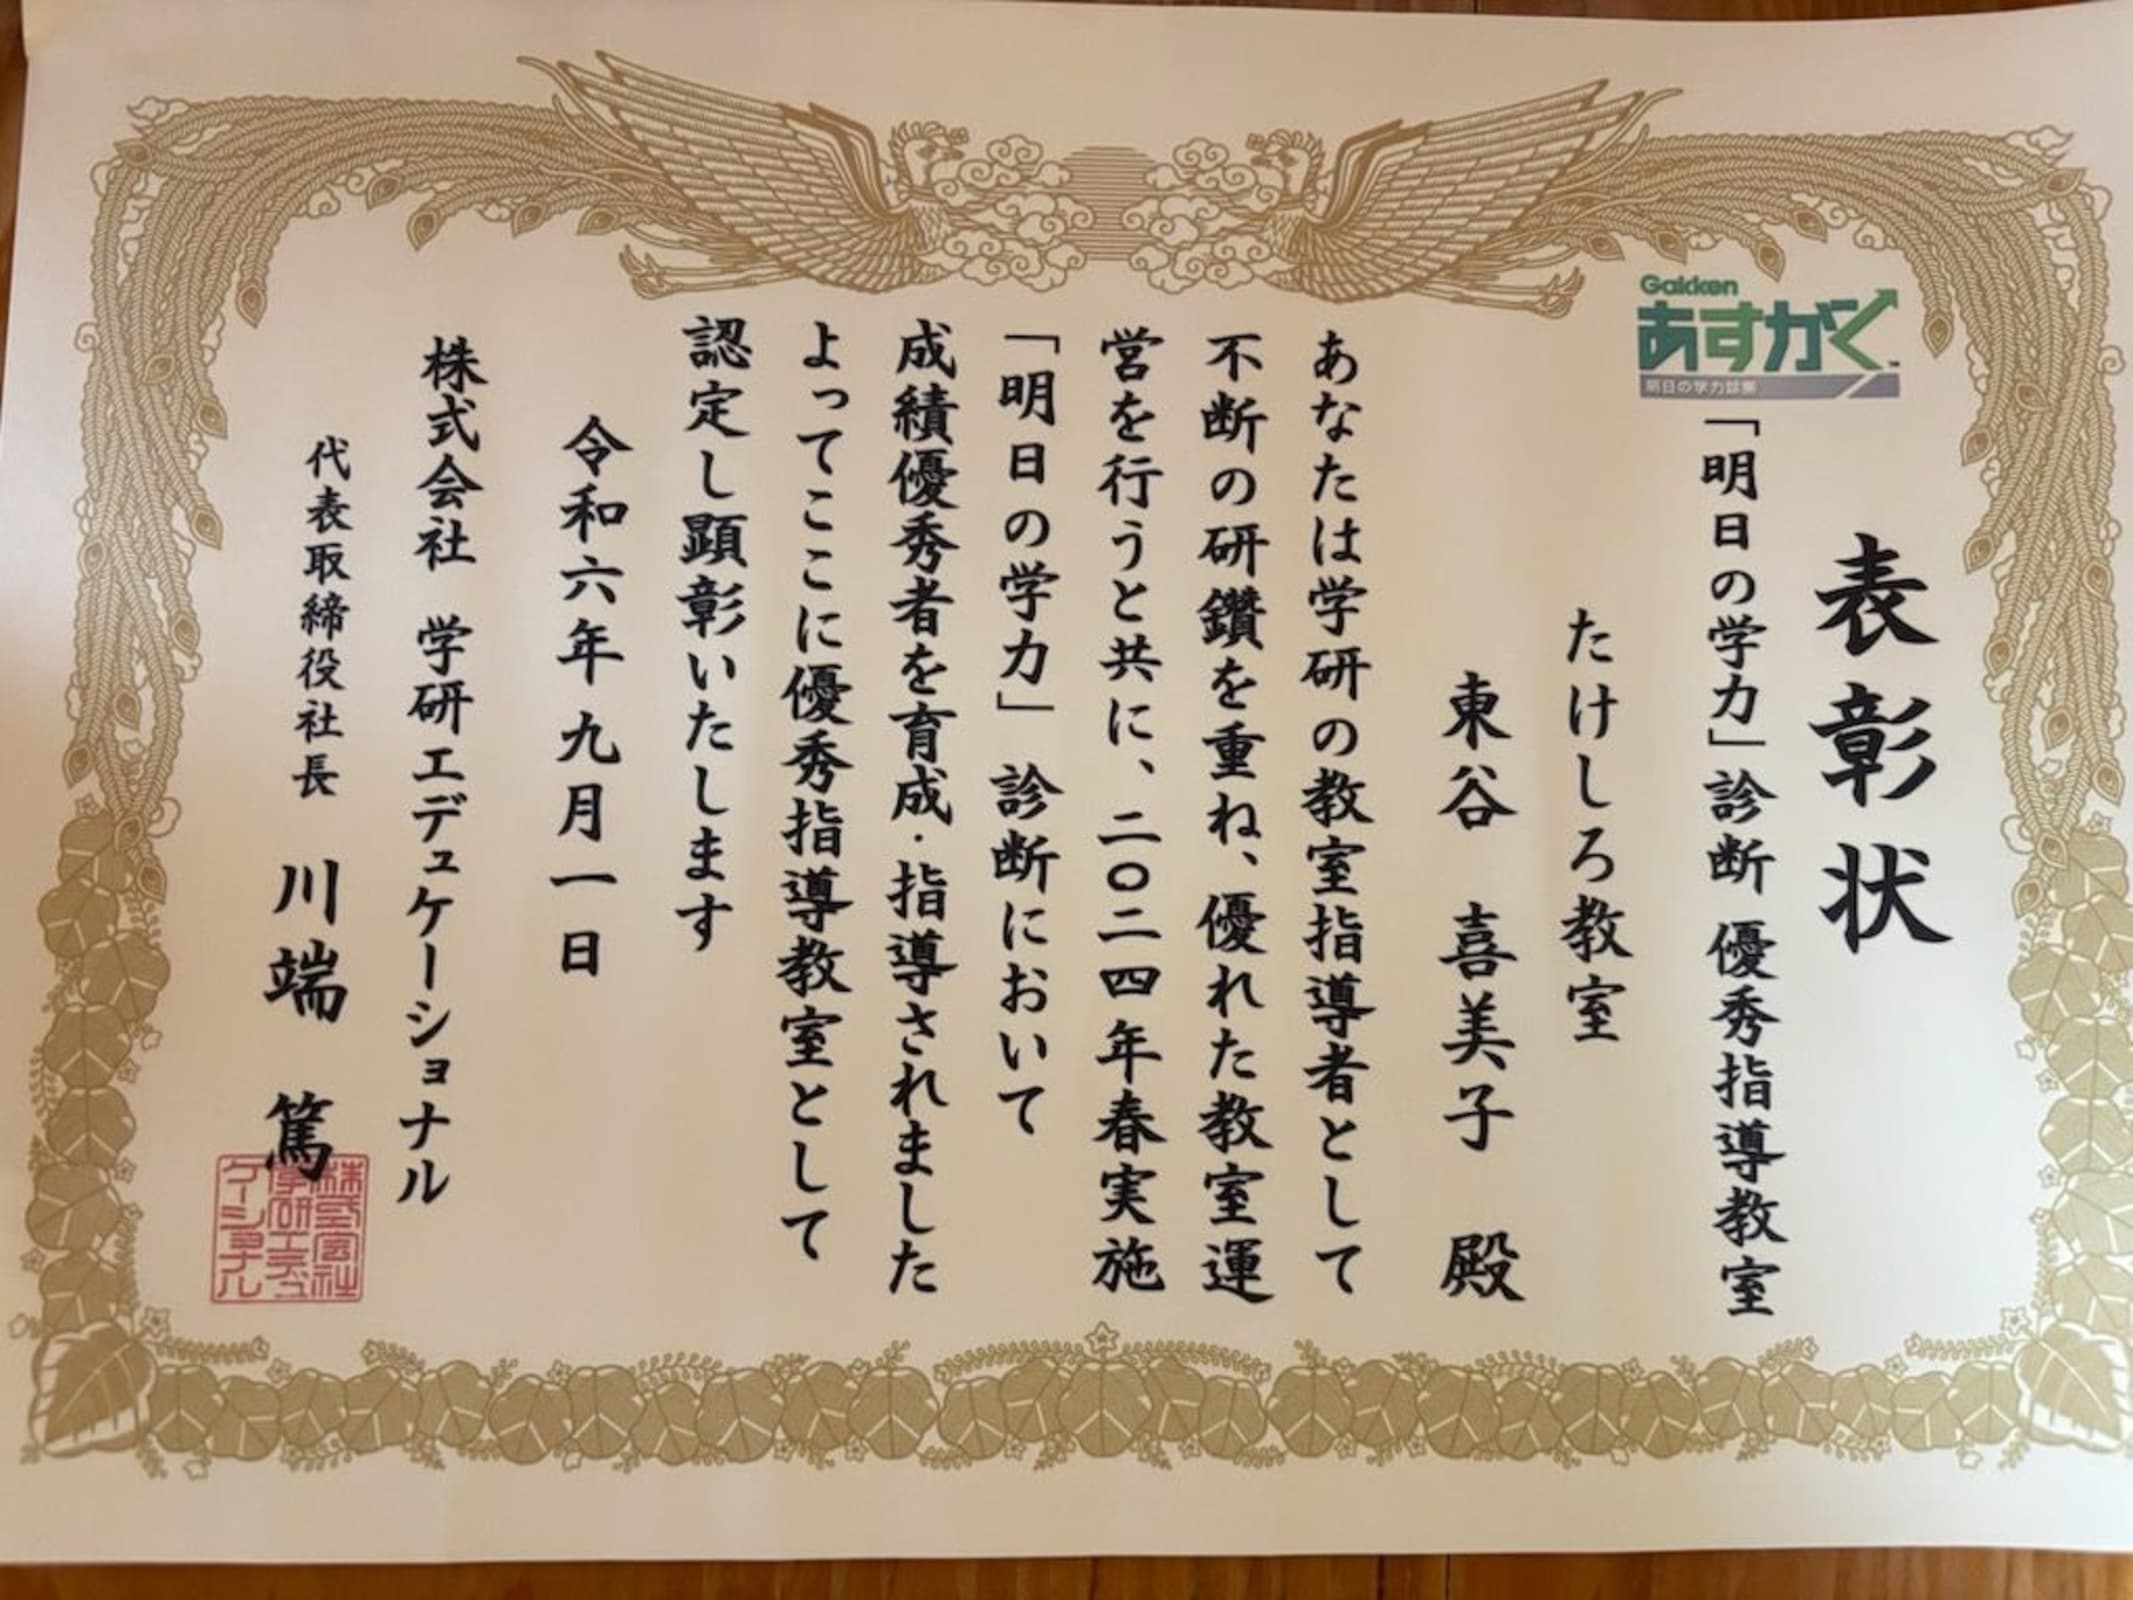 表彰状
Gakken
あすがく
明日の学力診断
「明日の学力」診断 優秀指導教室
たけしろ教室
東谷 喜美子 殿
あなたは学研の教室指導者として
不断の研鑽を重ね、優れた教室運
営を行うと共に、二〇二四年春実施
「明日の学力」診断において
成績優秀者を育成・指導されました
よってここに優秀指導教室として
認定し顕彰いたします
令和六年九月一日
株式会社 学研エデュケーショナル
代表取締役社長 川端 篤
株式会社
学研エデュ
ケーショナル